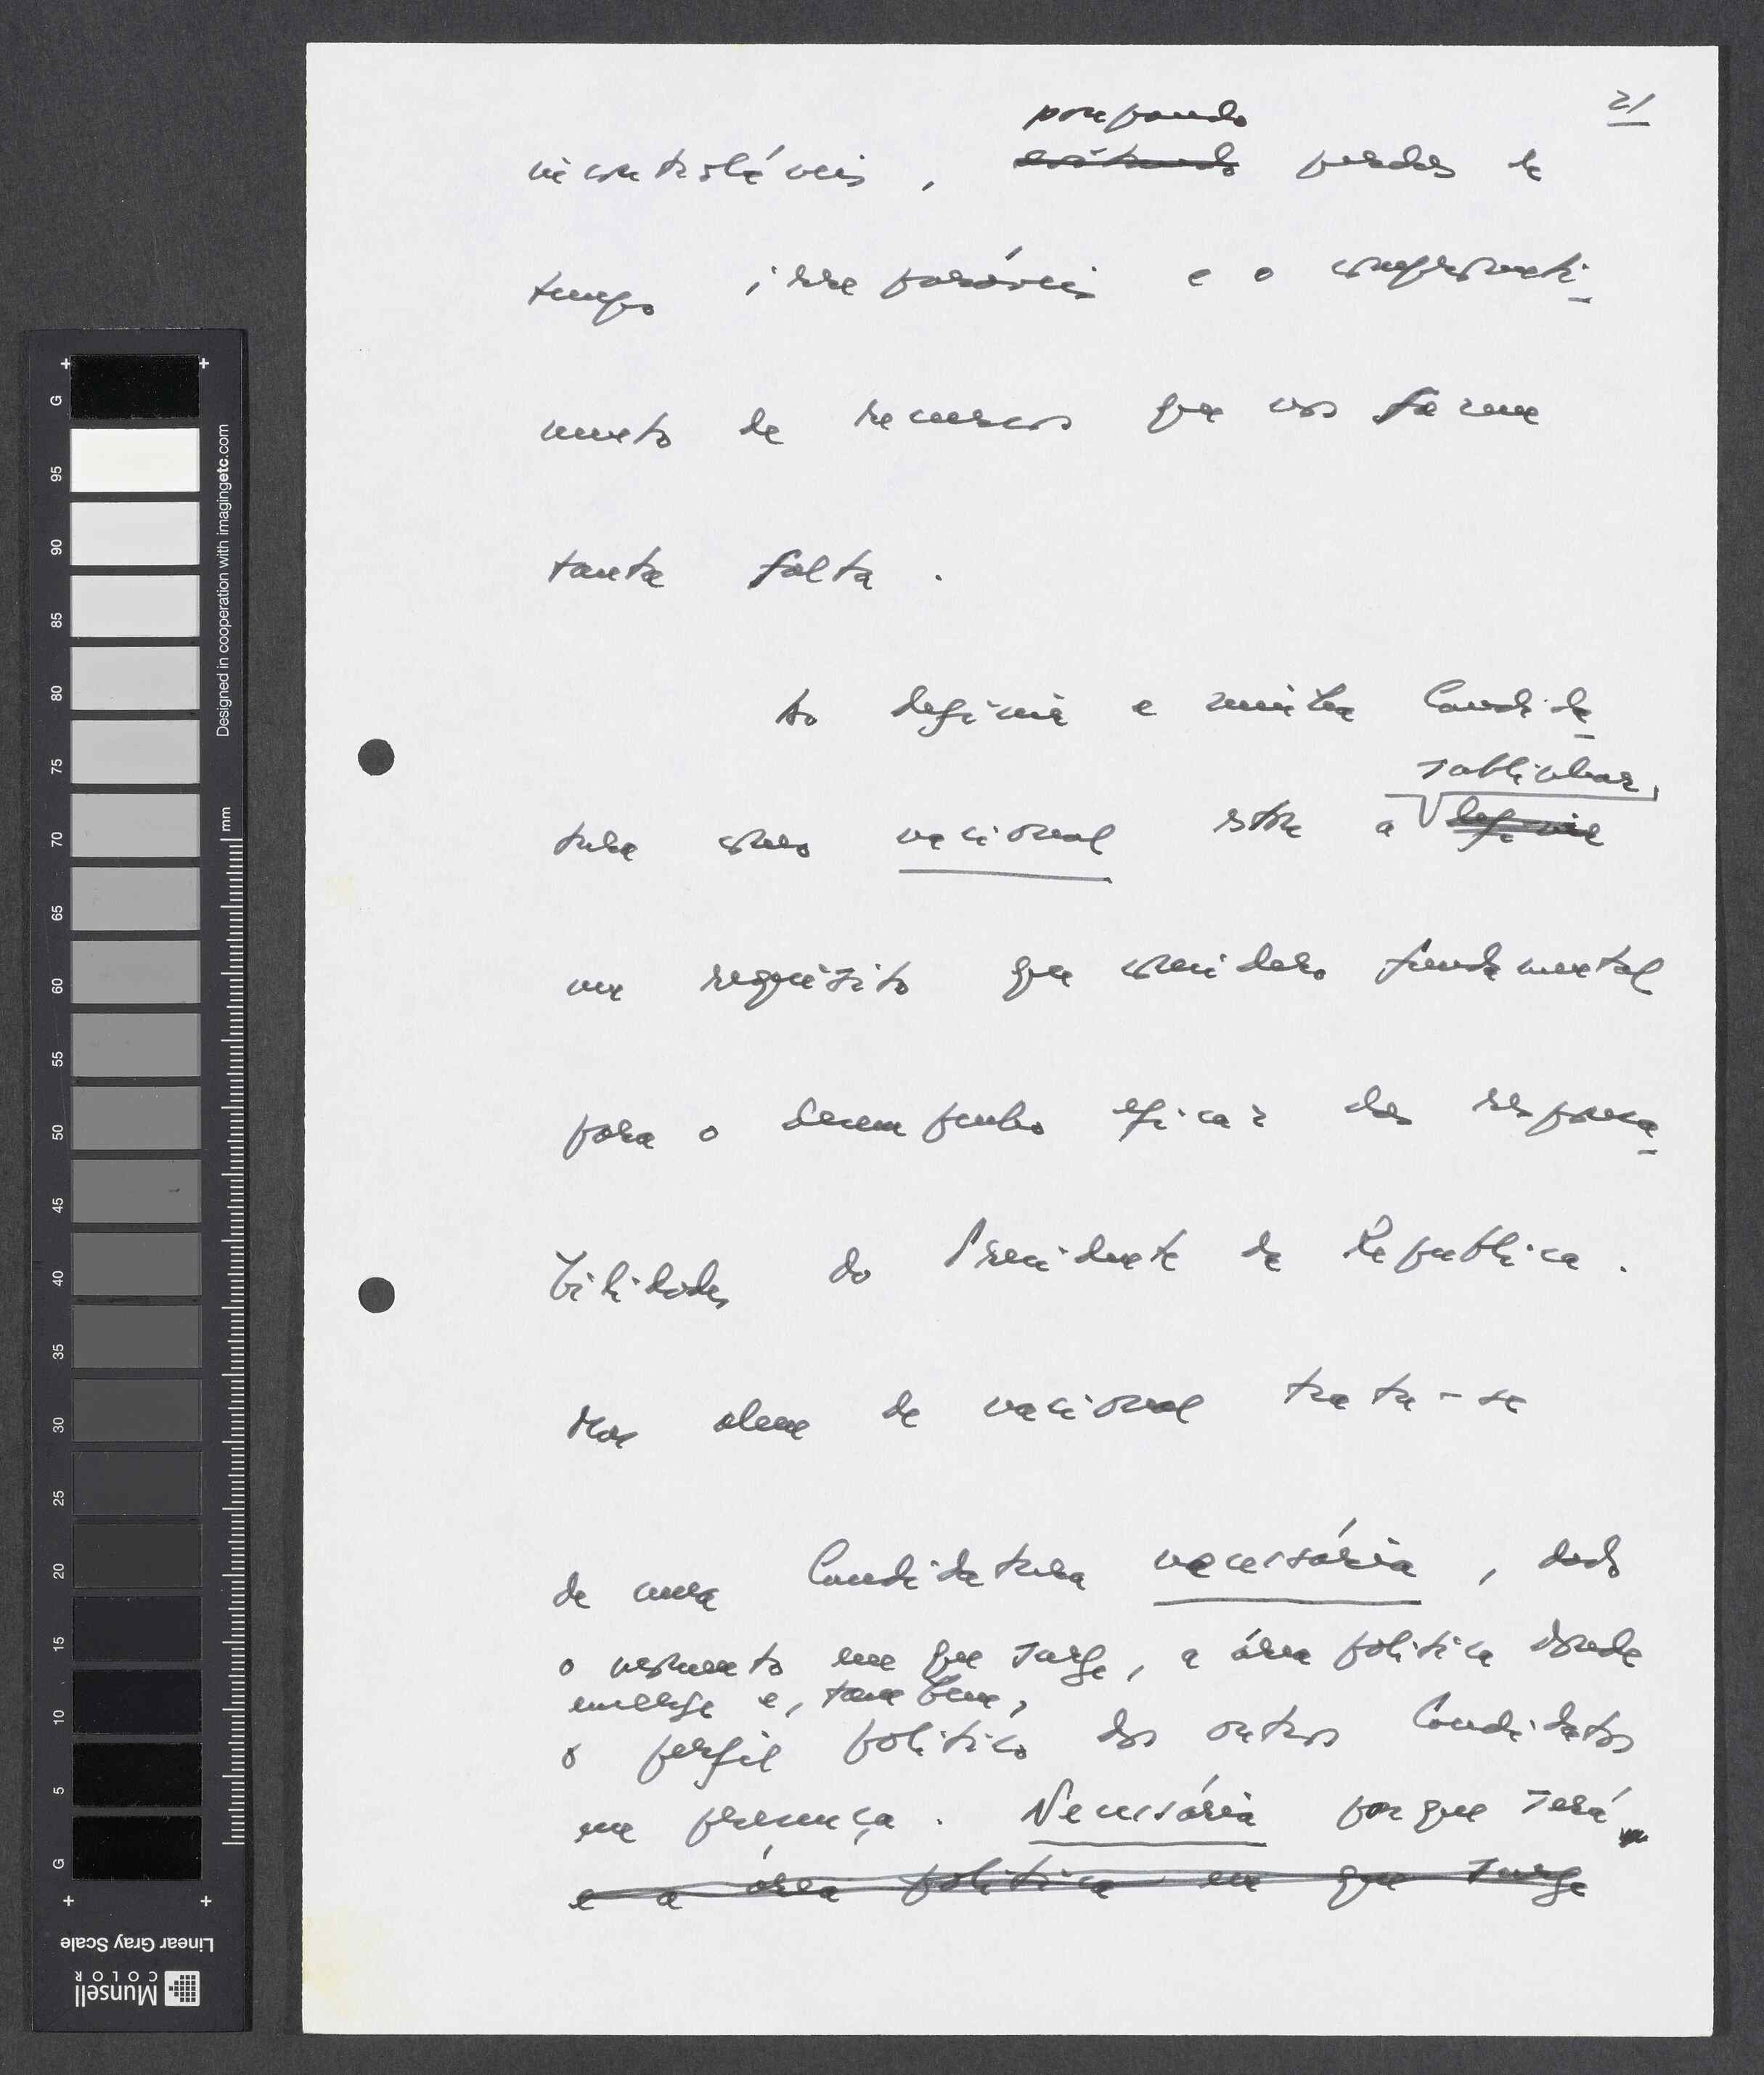 21
poupando
incontroláveis, evitando perdas de
tempo irreparáveis e o comprometi-
mento de recursos que nos fazem
tanta falta.
Ao definir a minha Candida-
sublinhar,
tura como nacional estou a definir
um requisito que considero fundamental
para o desempenho eficaz das responsa-
bilidades do Presidente da Republica.
Mas alem de nacional trata-se
de uma Candidatura necessária, dado
o momento em que surge, a área politica donde
emerge e, tambem,
o perfil politico dos outros Candidatos
em presença. Necessária porque será
e a área politica em que surge
+ +
G
95
90
85
80
75
70
65
60
55
50
45
40
35
30
25
20
15
10
5
G
+ +
mm
Designed in cooperation with imagingetc.com
Linear Gray Scale
Munsell
COLOR